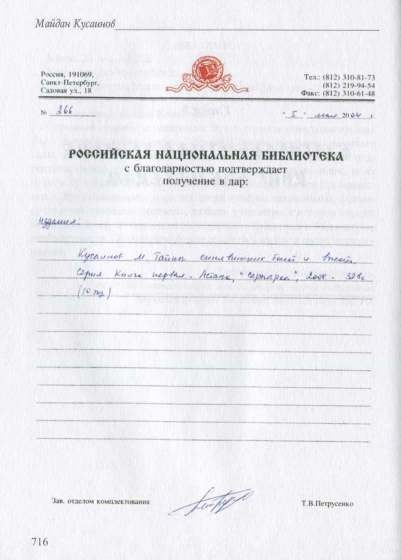 Майдан Кусаинов
Россия, 191069,
Санкт-Петербург,
Садовая ул., 18
Тел.: (812) 310-81-73
(812) 219-94-54
Факс: (812) 310-61-48
№ 266
"5" мая 2004 г
РОССИЙСКАЯ НАЦИОНАЛЬНАЯ БИБЛИОТЕКА
с благодарностью подтверждает
получение в дар:
издания:
Кусаинов М. Тайны
Серия Книга первая. Астана, "Сарыарка",
Зав. отделом комплектования
Т.В.Петрусенко
716